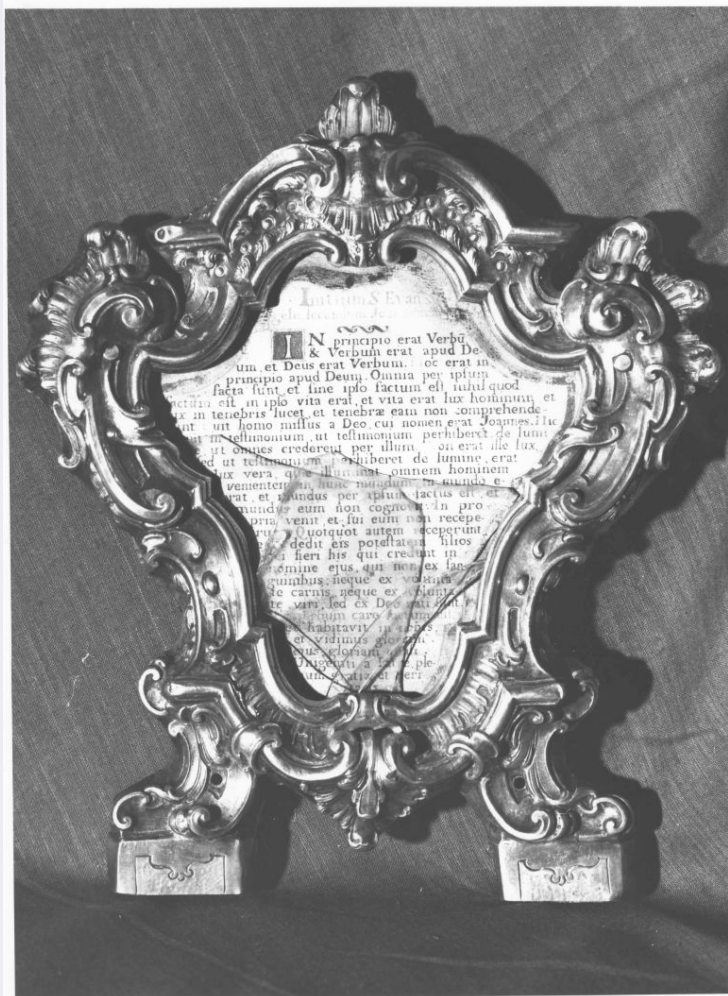 Initium S. Evan-
IN principio erat Verbū
& Verbum erat apud De-
um, et Deus erat Verbum. oc erat in
principio apud Deum. Omnia per ipsum
facta sunt, et sine ipso factum est nihil quod
actum est in ipso vita erat, et vita erat lux hominum, et
ux in tenebris lucet, et tenebræ eam non comprehende-
unt uit homo missus a Deo, cui nomen erat Joannes. Hic
in testimonium, ut testimonium perhiberet de lumi
ut omnes crederent per illum. on erat ille lux,
ed ut testimonium perhiberet de lumine, erat
lux vera, quæ illuminat omnem hominem
venientem in hunc mundum in mundo e-
rat, et mundus per ipsum factus est, et
mundus eum non cognovit. In pro-
pria venit, et sui eum non recepe-
Quotquot autem receperunt
dedit eis potestatem filios
i fieri his qui credunt in
nomine ejus, qui non ex san-
guinibus, neque ex volunta
te carnis, neque ex volunta
te viri, sed ex Deo nati sunt,
caro
habitavit in nobis,
et vidimus gloriam
ejus gloriam
Unigeniti a Patre ple-
um gratiæ et veri